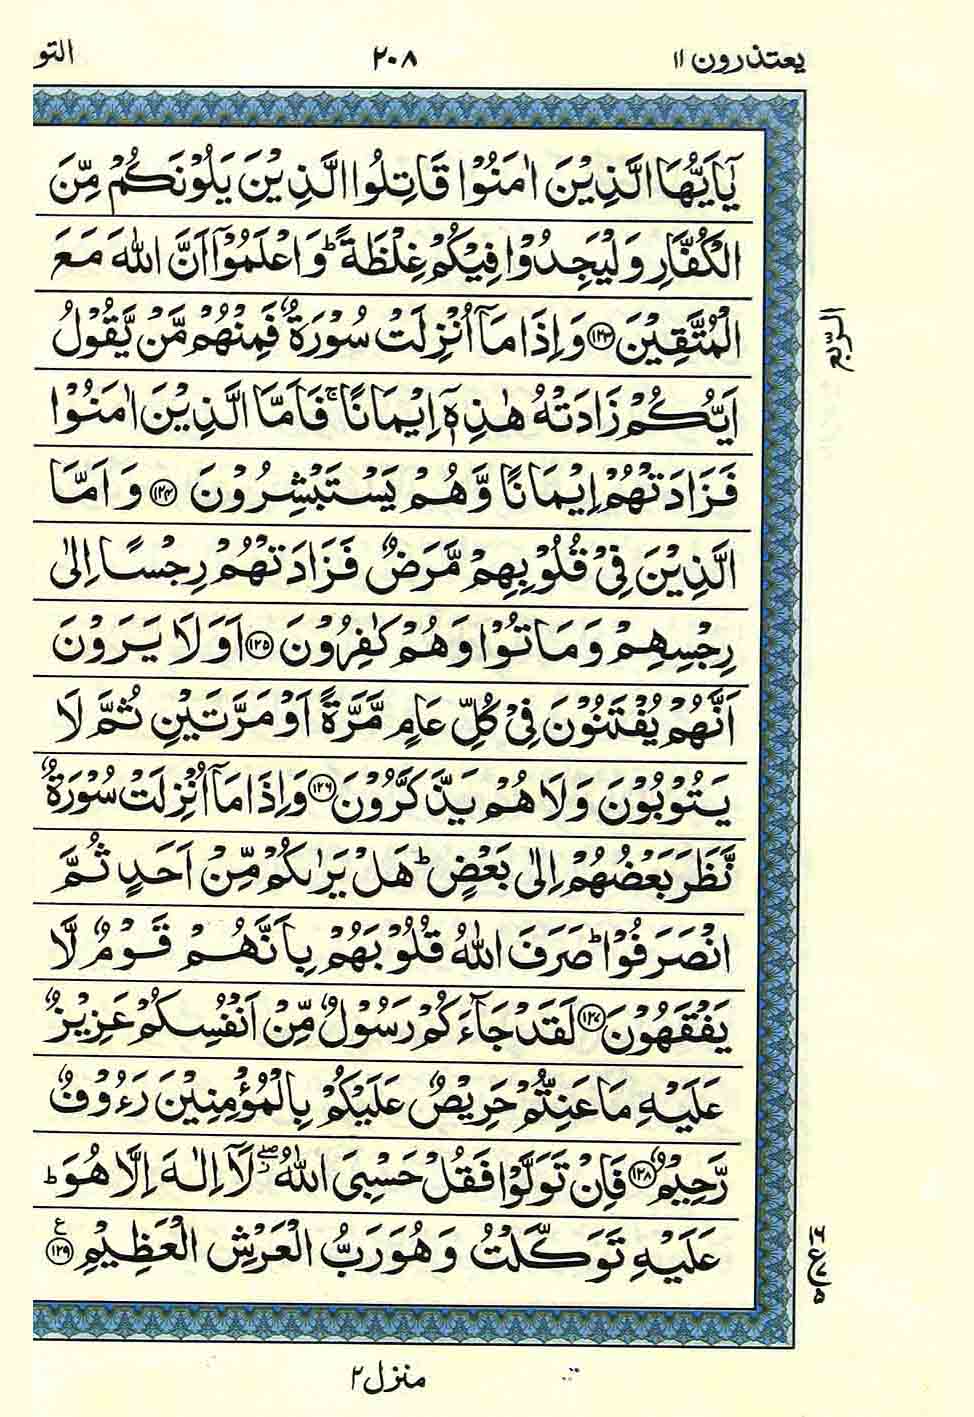 يعتذرون ١١
٢٠٨
التو
يٰٓاَيُّهَا الَّذِيْنَ اٰمَنُوْا قَاتِلُوا الَّذِيْنَ يَلُوْنَكُمْ مِّنَ
الْكُفَّارِ وَلْيَجِدُوْا فِيْكُمْ غِلْظَةً ؕ وَاعْلَمُوْٓا اَنَّ اللّٰهَ مَعَ
الْمُتَّقِيْنَ ۝۱۲۳ وَاِذَا مَآ اُنْزِلَتْ سُوْرَةٌ فَمِنْهُمْ مَّنْ يَّقُوْلُ
اَيُّكُمْ زَادَتْهُ هٰذِهٖٓ اِيْمَانًا ۚ فَاَمَّا الَّذِيْنَ اٰمَنُوْا
فَزَادَتْهُمْ اِيْمَانًا وَّهُمْ يَسْتَبْشِرُوْنَ ۝۱۲۴ وَاَمَّا
الَّذِيْنَ فِيْ قُلُوْبِهِمْ مَّرَضٌ فَزَادَتْهُمْ رِجْسًا اِلٰى
رِجْسِهِمْ وَمَاتُوْا وَهُمْ كٰفِرُوْنَ ۝۱۲۵ اَوَلَا يَرَوْنَ
اَنَّهُمْ يُفْتَنُوْنَ فِيْ كُلِّ عَامٍ مَّرَّةً اَوْ مَرَّتَيْنِ ثُمَّ لَا
يَتُوْبُوْنَ وَلَا هُمْ يَذَّكَّرُوْنَ ۝۱۲۶ وَاِذَا مَآ اُنْزِلَتْ سُوْرَةٌ
نَّظَرَ بَعْضُهُمْ اِلٰى بَعْضٍ ؕ هَلْ يَرٰىكُمْ مِّنْ اَحَدٍ ثُمَّ
انْصَرَفُوْا ؕ صَرَفَ اللّٰهُ قُلُوْبَهُمْ بِاَنَّهُمْ قَوْمٌ لَّا
يَفْقَهُوْنَ ۝۱۲۷ لَقَدْ جَآءَكُمْ رَسُوْلٌ مِّنْ اَنْفُسِكُمْ عَزِيْزٌ
عَلَيْهِ مَا عَنِتُّمْ حَرِيْصٌ عَلَيْكُمْ بِالْمُؤْمِنِيْنَ رَءُوْفٌ
رَّحِيْمٌ ۝۱۲۸ فَاِنْ تَوَلَّوْا فَقُلْ حَسْبِيَ اللّٰهُ ۖ لَآ اِلٰهَ اِلَّا هُوَ ؕ
عَلَيْهِ تَوَكَّلْتُ وَهُوَ رَبُّ الْعَرْشِ الْعَظِيْمِ ۝۱۲۹ ع
الربع
منزل ۲